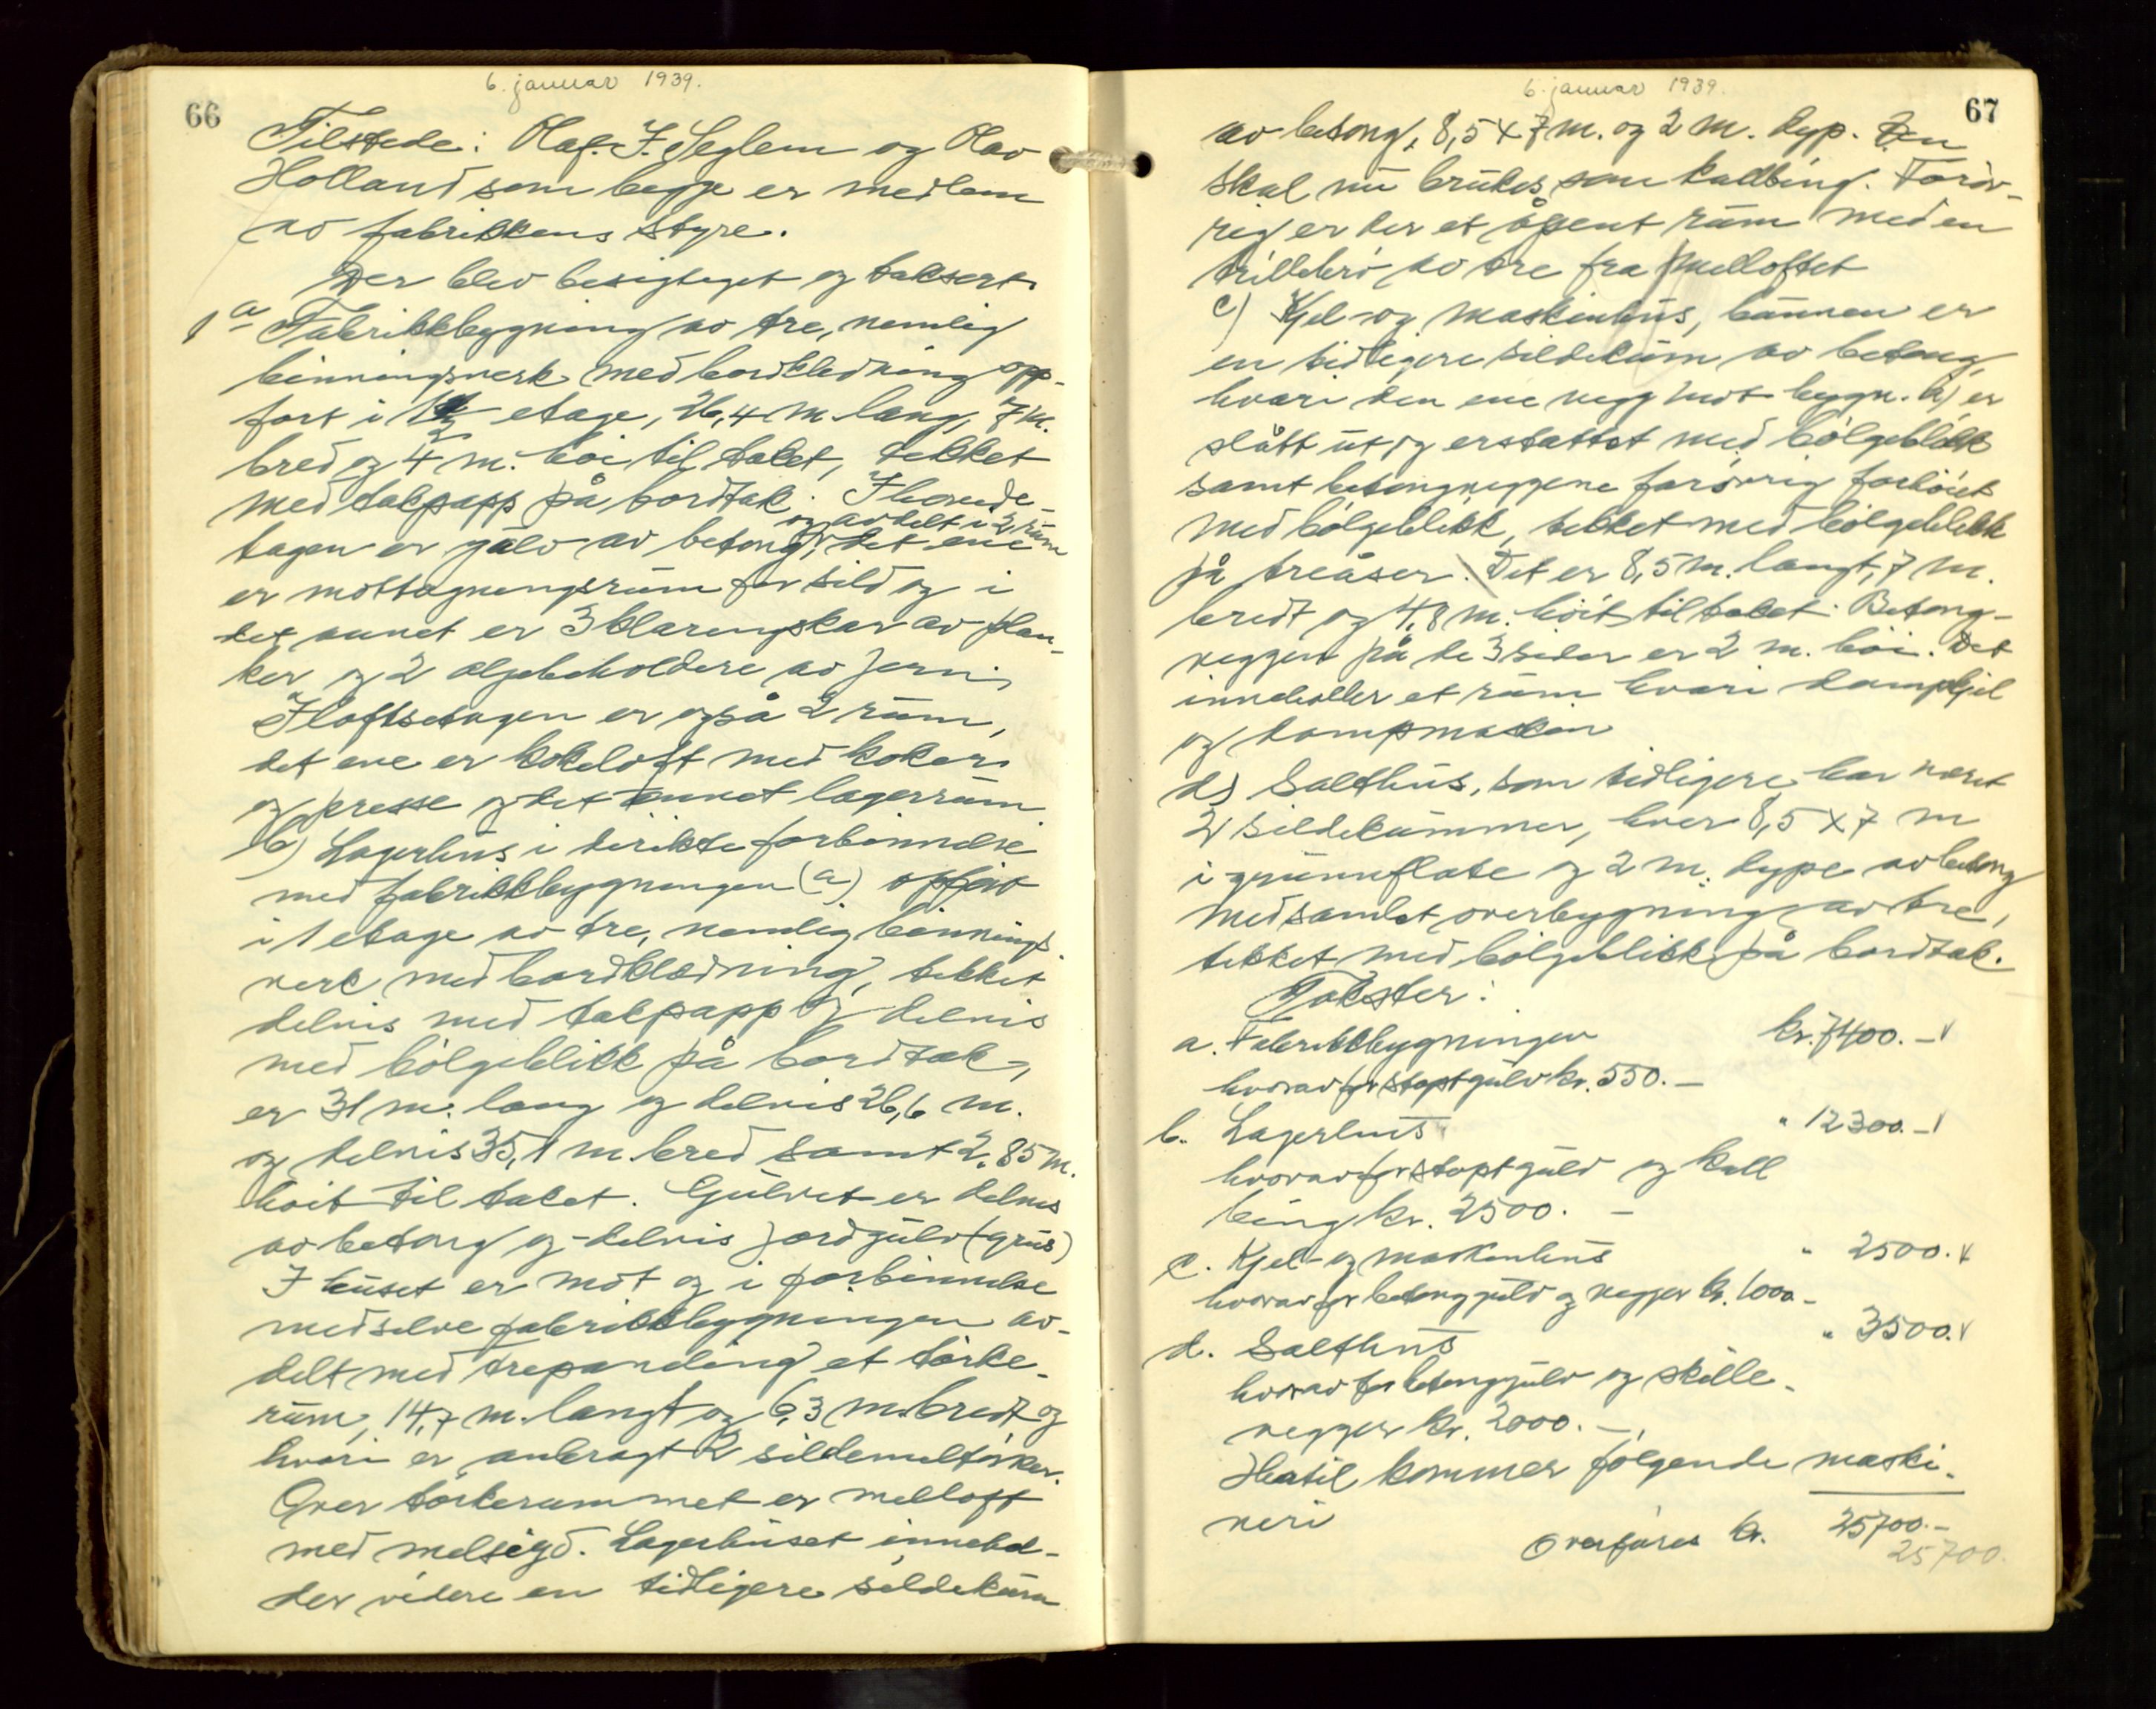 6. januar 1939.
66
Tilstede: Olaf. J. Seglem og Olav
Holland som begge er medlem
av fabrikkens styre.
Der blev besigtiget og taksert.
1 a Fabrikkbygning av tre, nemlig
binningsverk med bordkledning opp-
fort i 1½ etage, 26,4 m. lang, 7 m.
bred og 4 m. høi til taket, tekket
med takpapp på bordtak. I hovede-
tagen er gulv av betong, og avdelt i 2 rum det ene
er mottagningsrum for sild og i
det annet er 3 klaringskar av plan-
ker og 2 oljebeholdere av jern,
I loftsetagen er også 2 rum,
det ene er kokeloft med koker
og presse og det annet lagerrum
b) Lagerhus i direkte forbinnelse
med fabrikkbygningen (a) opført
i 1 etage av tre, nemlig binnings
verk med bordklædning, tekket
delvis med takpapp og delvis
med bølgeblikk på bordtak,
er 31 m. lang og delvis 26,6 m.
og delvis 35,1 m. bred samt 2,85 m.
høit til taket. Gulvet er delvis
av betong og delvis jordgulv (grus)
I huset er mot og i forbinnelse
med selve fabrikkbygningen av-
delt med trepaneling et tørke-
rum, 14,7 m. langt og 6,3 m. bredt og
hvori er anbragt 2 sildemeltørker.
Over tørkerummet er melloft
med melsigd. Lagerhuset innehol-
der videre en tidligere sildekum
6. januar 1939.
67
av betong, 8,5 x 7 m. og 2 m. dyp. Den
skal nu brukes som kullbing. Forøv-
rig er der et åpent rum med en
trillebro av tre fra melloftet
c) Kjel- og maskinhus, bunnen er
en tidligere sildekum av betong,
hvori den ene vegg mot bygn. b) er
slått ut og erstattet med bølgeblikk
samt betongveggene forøvrig forhøiet
med bølgeblikk, tekket med bølgeblikk
på treåser. Det er 8,5 m. langt, 7 m.
bredt og 4,8 m. høit til taket. Betong-
veggen på de 3 sider er 2 m. høi. Det
inneholder et rum hvori dampkjel
og dampmaskin
d) Salthus, som tidligere har været
2 sildekummer, hver 8,5 x 7 m
i grunnflate og 2 m. dype av betong
med samlet overbygning av tre,
tekket med bølgeblikk på bordtak.
Takster:
a. Fabrikkbygningen kr. 7400.-
hvorav for støpt gulv kr. 550.-
b. Lagerhus " 12300.-
hvorav for støpt gulv og kull
bing kr. 2500. -
c. Kjel- og maskinhus " 2500.
hvorav for betonggulv og vegger kr. 1000.-
d. Salthus " 3500.
hvorav for betonggulv og skille-
vegger kr. 2000.-
Hertil kommer følgende maski-
neri
Overføres kr. 25700.-
25700.